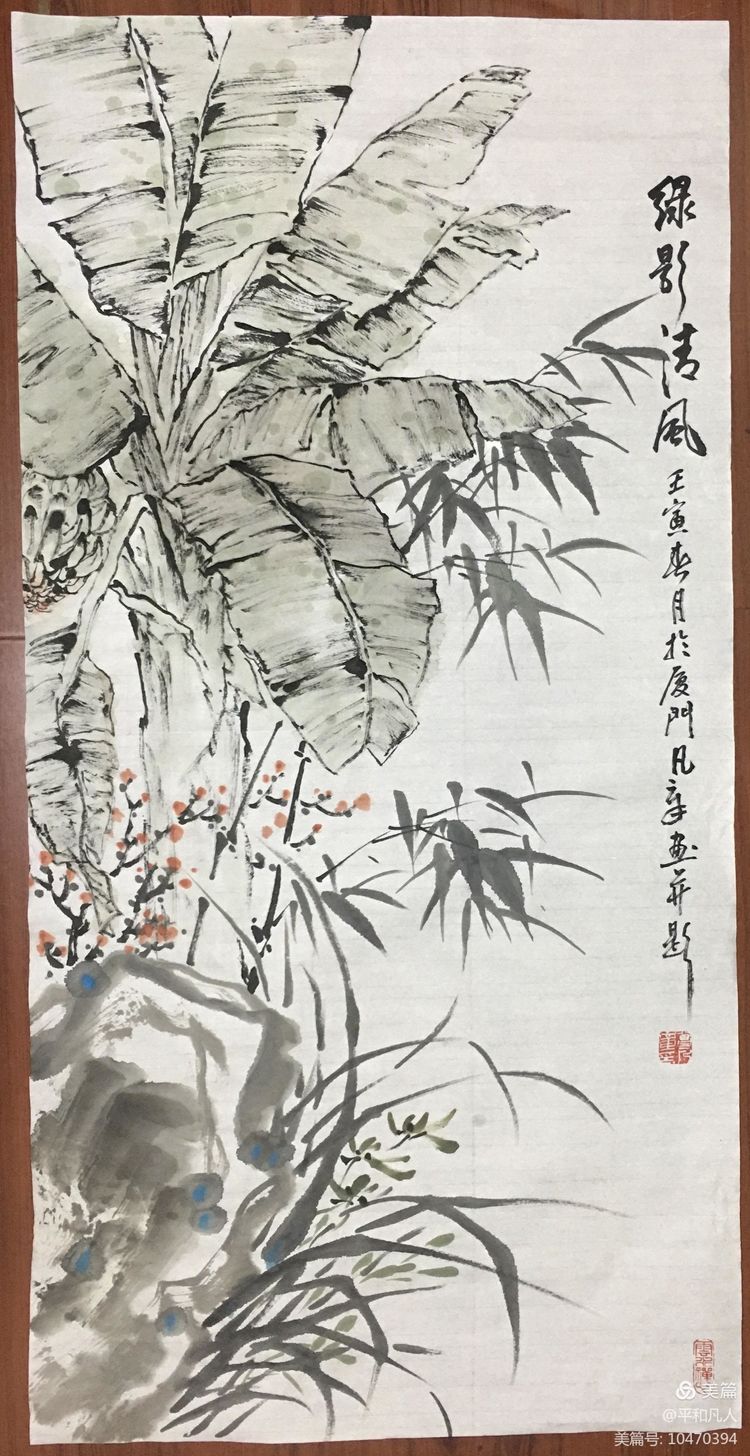 绿影清风
壬寅春月於厦門凡辛画并题
美篇
@平和凡人
美篇号: 10470394